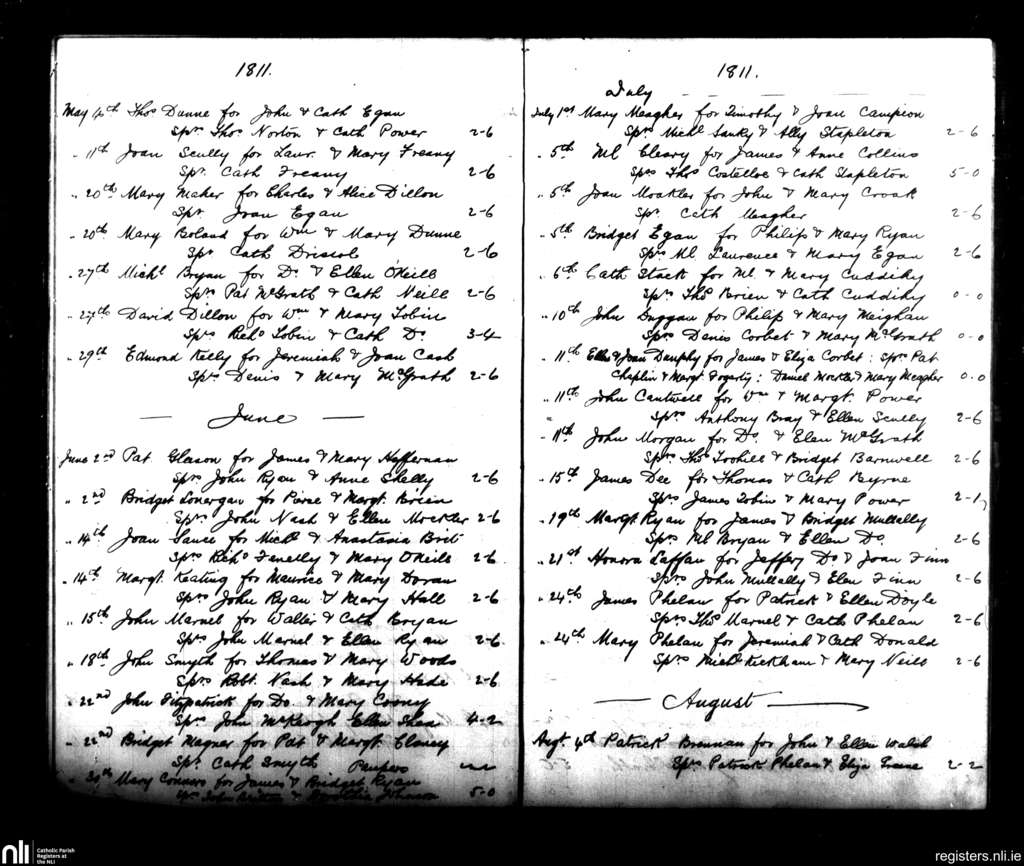 1811.
May 4th Thos Dunne for John & Cath Egan
Sprs Thos Norton & Cath Power 2-6
" 11th Joan Scully for Laur. & Mary Freany
Spr. Cath Freany 2-6
" 20th Mary Maher for Charles & Alice Dillon
Spr Joan Egan 2-6
" 20th Mary Boland for Wm & Mary Dunne
Spr Cath Driscol 2-6
" 27th Michl Bryan for Do. & Ellen O'Neill
Sprs Pat McGrath & Cath Neill 2-6
" 27th David Dillon for Wm & Mary Tobin
Sprs Richd Tobin & Cath Do. 3-4
" 29th Edmond Kelly for Jeremiah & Joan Cash
Sprs Denis & Mary McGrath 2-6
— June —
June 2nd Pat Glason for James & Mary Heffernan
Sprs John Ryan & Anne Shelly 2-6
" 2nd Bridget Lonergan for Pierse & Margt. Brien
Sprs John Nash & Ellen Mockler 2-6
" 14th Joan for Michl & Anastasia
Sprs Richd Fenelly & Mary O'Neill 2-6
" 14th Margt. Keating for Maurice & Mary Doran
Sprs John Ryan & Mary Hall 2-6
" 15th John Marnel for Walter & Cath Bryan
Sprs John Marnel & Ellen Ryan 2-6
" 18th John Smyth for Thomas & Mary Woods
Sprs Robt. Nash & Mary Hade 2-6
" 22nd John Fitzpatrick for Do. & Mary Coony
Sprs John McKeogh Ellen Shea 4-2
" 22nd Bridget Magner for Pat & Margt. Clancy
Spr. Cath Smyth Paupers
Mary Connors for James & Bridget Ryan
John & Johnson 5-0
1811.
July
July 1st Mary Meagher for Timothy & Joan Campion
Sprs Michl Sanky & Ally Stapleton 2-6
" 5th Ml Cleary for James & Anne Collins
Sprs Thos Costelloe & Cath Stapleton 5-0
" 5th Joan Moakler for John & Mary Croak
Spr. Cath Meagher 2-6
" 5th Bridget Egan for Philip & Mary Ryan
Sprs Ml. Laurence & Mary Egan 2-6
" 6th Cath Stack for Ml & Mary Cuddihy
Sprs Thos Brien & Cath Cuddihy 0-0
" 10th John Duggan for Philip & Mary Meighan
Sprs Denis Corbet & Mary McGrath 0-0
" 11th Ellen & Joan Dunphy for James & Eliza Corbet: Sprs Pat
Chaplin & Margt. Fogarty: Daniel Mockler & Mary Meagher 0.0
" 11th John Cantwell for Wm & Margt. Power
" Sprs Anthony Bray & Ellen Scully 2-6
" 11th John Morgan for Do. & Elen McGrath
Sprs Thos Toohill & Bridget Barnwell 2-6
" 15th James Dee for Thomas & Cath Byrne
Sprs James Tobin & Mary Power 2-1
" 19th Margt Ryan for James & Bridget Mullally
Sprs Ml Bryan & Ellen Do. 2-6
" 21st Honora Laffan for Jeffery Do & Joan Finn
Sprs John Mullally & Elen Finn 2-6
" 24th James Phelan for Patrick & Ellen Doyle
Sprs Thos Marnel & Cath Phelan 2-6
" 24th Mary Phelan for Jeremiah & Cath Donald
Sprs Michl Kickham & Mary Neill 2-6
— August —
Augt. 4th Patrick Brennan for John & Ellen Walsh
Sprs Patrick Phelan & Eliza 2-2
nli Catholic Parish
Registers at
the NLI
registers.nli.ie